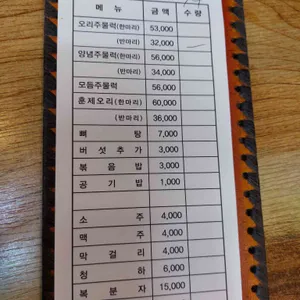 메 뉴 금 액 수 량
오리주물럭(한마리) 53,000
(반마리) 32,000
양념주물럭(한마리) 56,000
(반마리) 34,000
모듬주물럭 56,000
훈제오리(한마리) 60,000
(반마리) 36,000
뼈 탕 7,000
버섯추가 3,000
볶음밥 3,000
공기밥 1,000
소 주 4,000
맥 주 4,000
막걸리 4,000
청 하 6,000
복분자 15,000